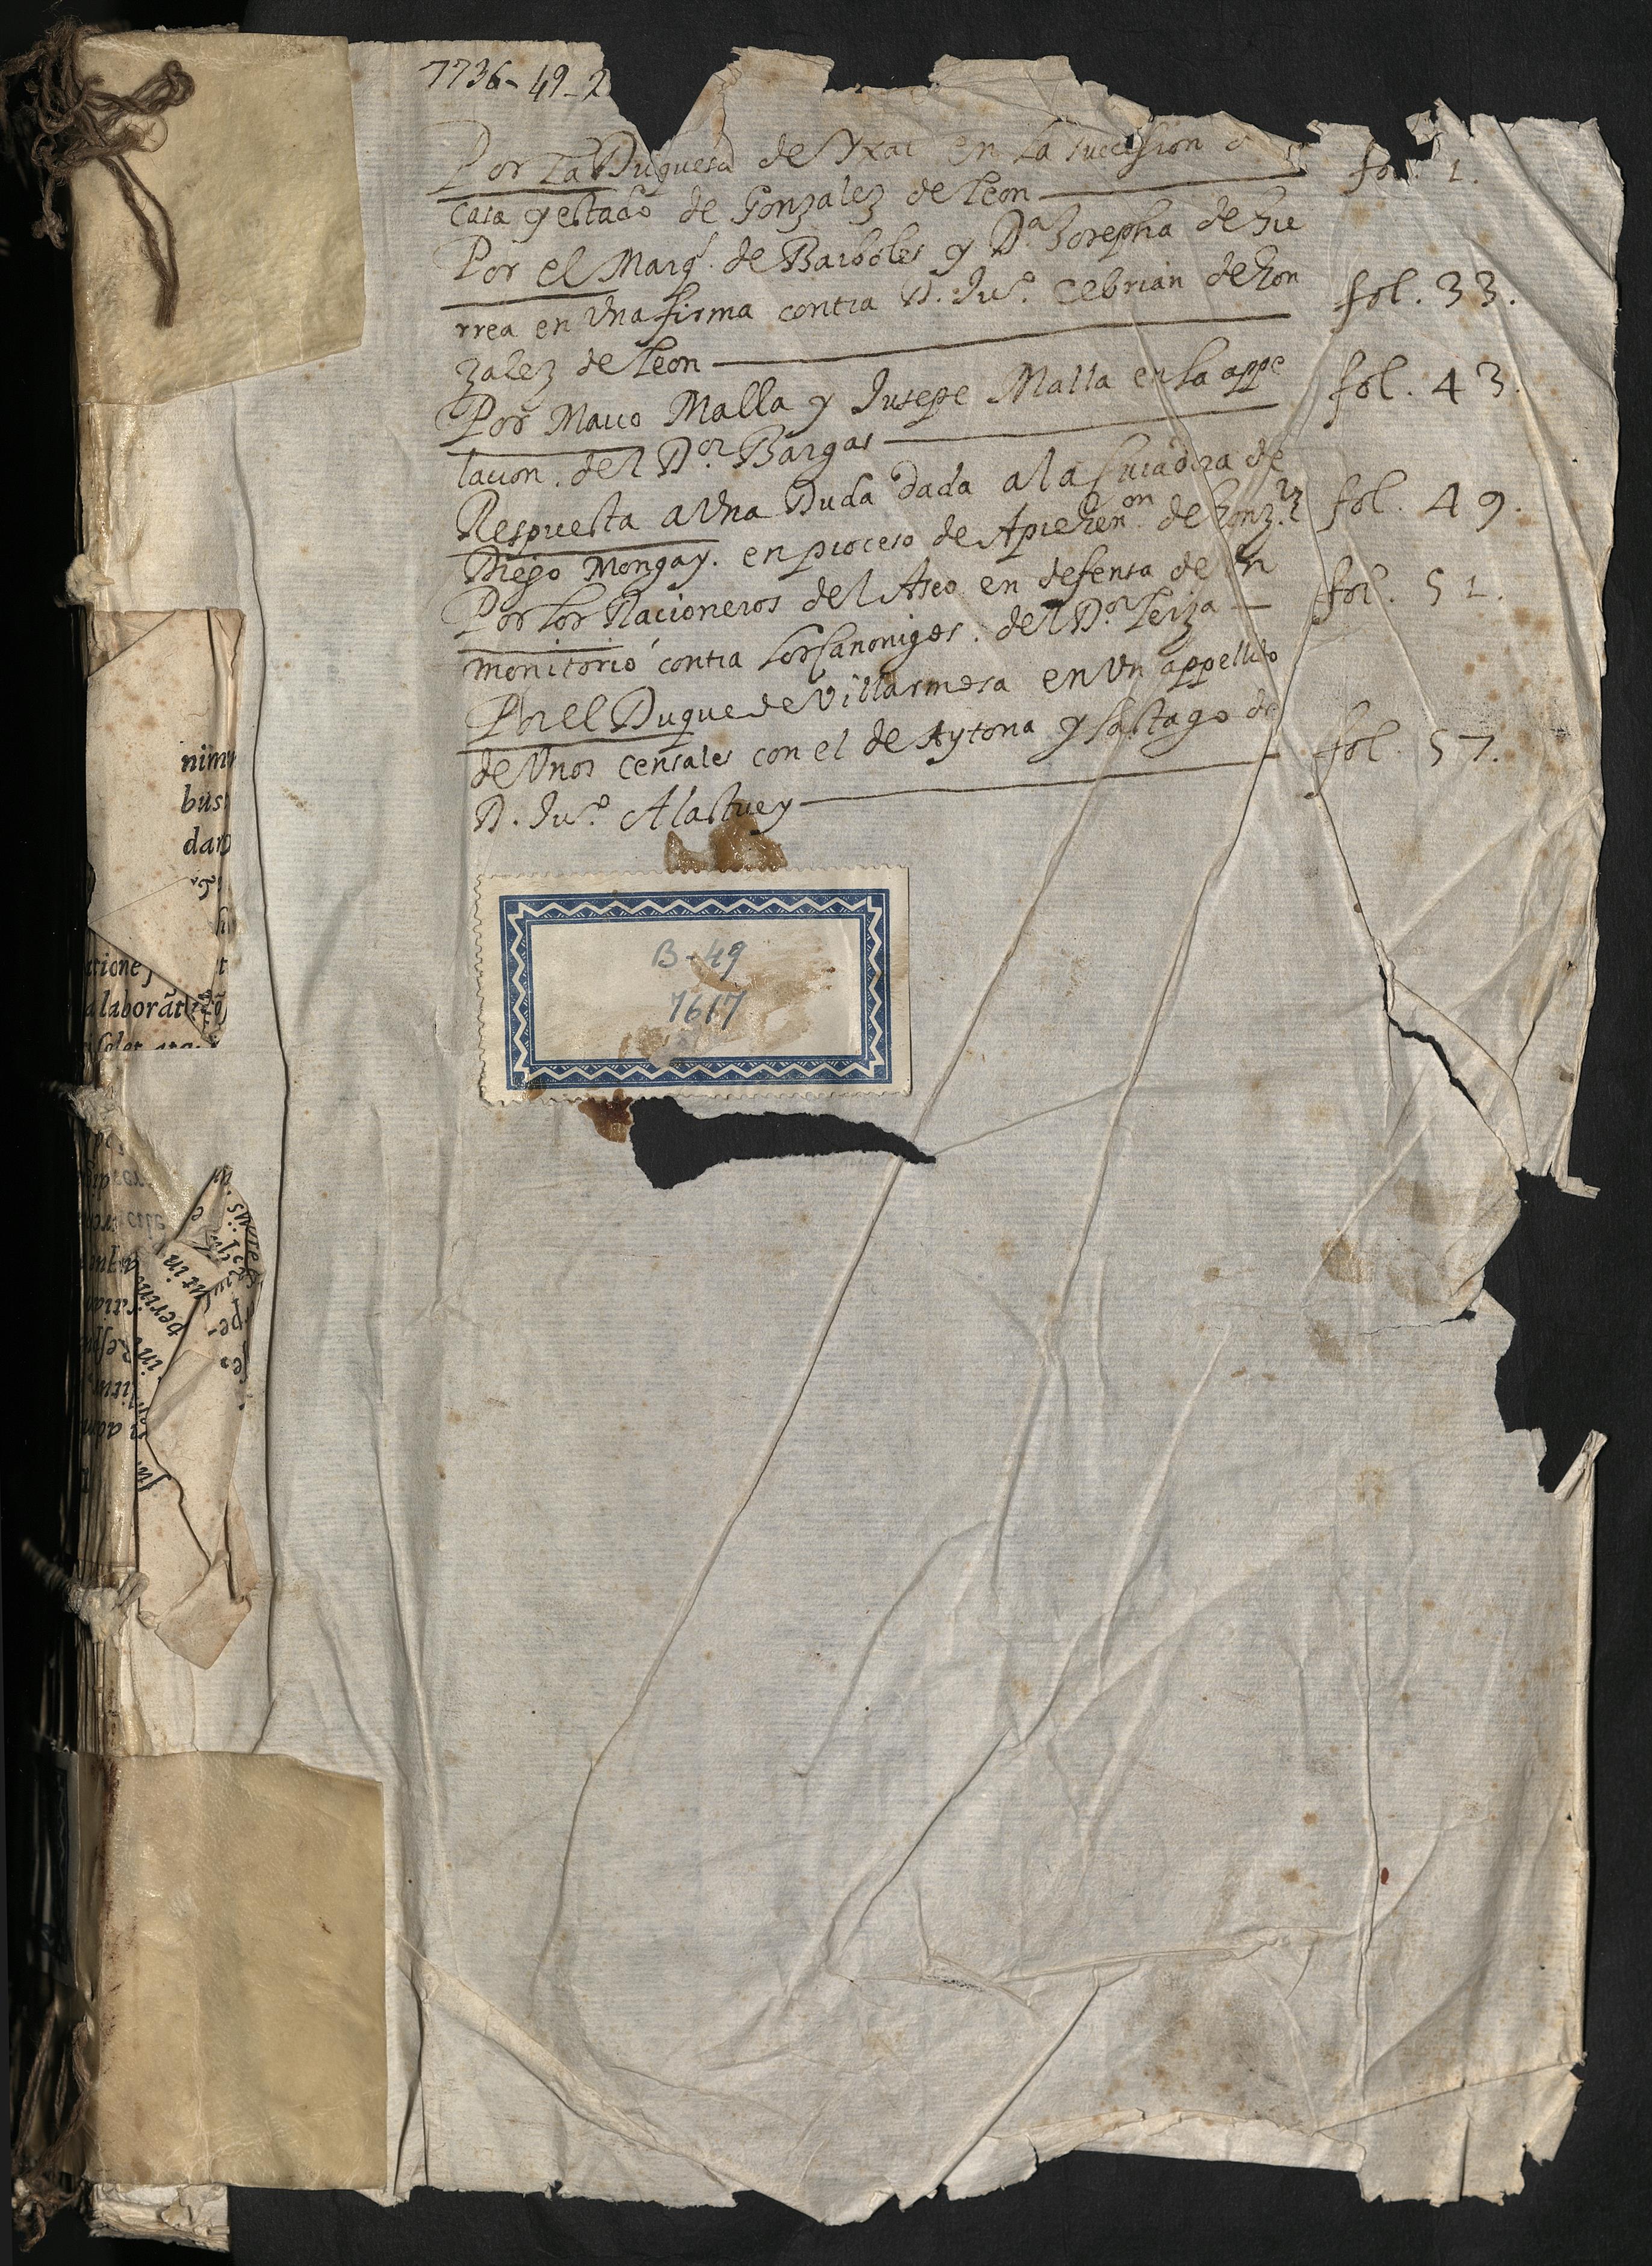 7736-49-2
Por La Duquesa de Yxar en La succession d
fol. 1.
casa y estado de Gonzalez de Leon
Por el Marq.s de Barboles y D.ª Josepha de Hue
rrea en Vna firma contra D. Ju.º Cebrian de Gon
fol. 33.
zalez de Leon
Por Marco Malla y Jusepe Malla en la appe
fol. 43.
lacion. del D.or Bargas
Respuesta a Vna Duda dada a la de
Diego Mongay. en proceso de Aprehen.on de
fol. 49.
Por los Racioneros del Aseo en defensa de Vn
fol. 51.
monitorio contra los Canoniges. del D.or Leiza
Por el Duque de Villarmosa en Vn appellido
de Vnos censales con el de Aytona y Sastago de
fol. 57.
D. Ju.º Alastuey
B-49
1617
nim
bus
dar
tione
alaborãt
ut in
perim
in
pe-